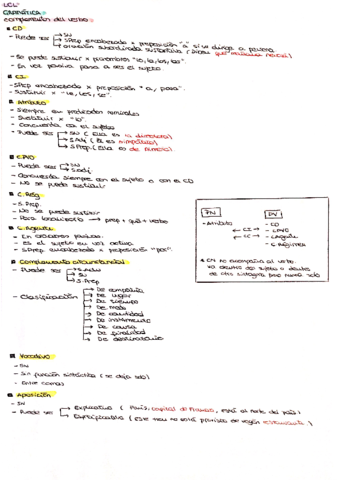 LCL
GRAMÁTICA:
complementos del verbo:
CD
- Puede ser → SN
→ SPrep encabezado x preposición "a" si va dirigido a persona
→ oración subordinada sustantiva
- Se puede sustituir x pronombres "lo, la, los, las".
- En voz pasiva pasa a ser el sujeto
CI
- SPrep encabezado x preposición "a, para".
- Sustituir x "le, les, se".
Atributo
- Siempre en predicados nominales
- Sustituir x "lo"
- Concuerda con el sujeto
- Puede ser → SN (Ella es la directora)
→ SAdj (Él es simpático)
→ SPrep (Ella es de Madrid)
C.PVO
- Puede ser → SN
→ SAdj.
- Concuerda siempre con el sujeto o con el CD
- No se puede sustituir
C.Rég
- S.Prep.
- No se puede sustituir
- Para localizarlo → prep + qué + verbo
C. Agente
- En oraciones pasivas.
- Es el sujeto en voz activa.
- SPrep encabezado x preposición "por".
Complemento circunstancial
- Puede ser → S.Adv
→ SN
→ S.Prep
- Clasificación → De compañía
→ De lugar
→ De tiempo
→ De modo
→ De cantidad
→ De instrumento
→ De causa
→ De finalidad
→ De destinatario
PN PV
- Atributo - CD
← CI → - C.PVO
← CC → - C.Agente
- C.Régimen
Vocativo
- SN
- Sin función sintáctica (se deja solo)
- Entre comas
Aposición
- SN
- Puede ser → Explicativa (París, capital de Francia, está al norte del país)
→ Especificativa